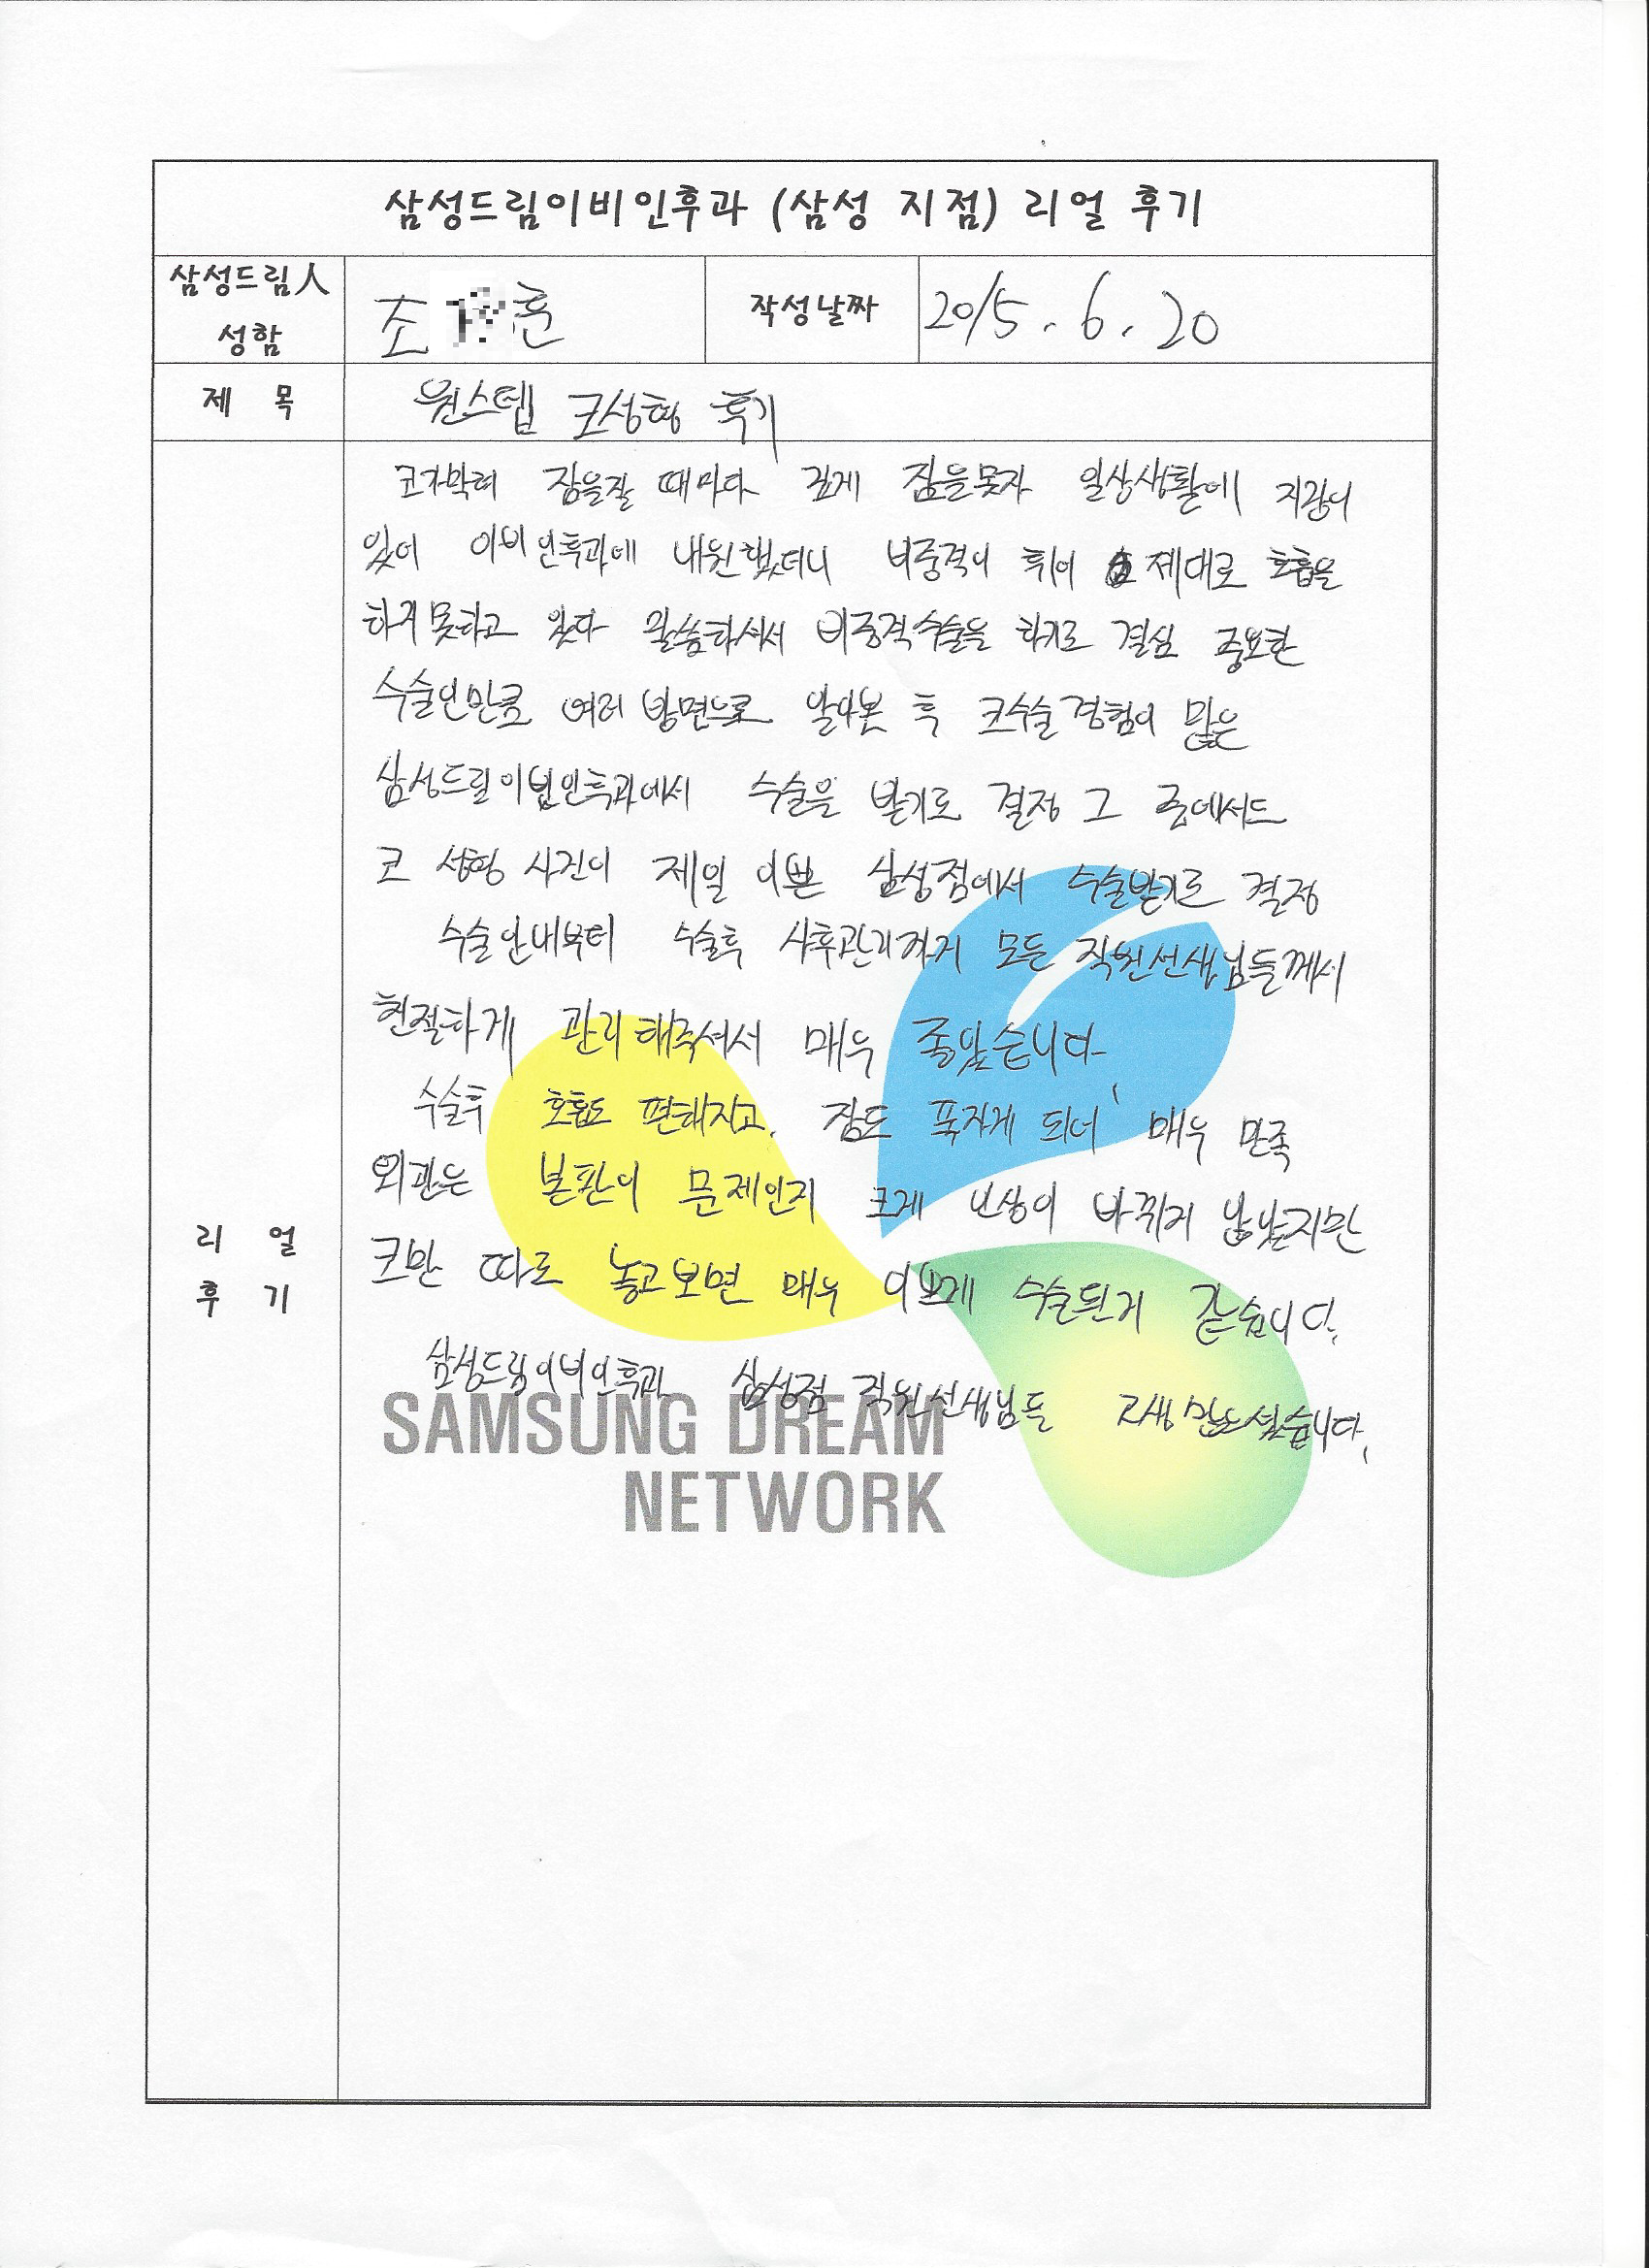 삼성드림이비인후과 (삼성 지점) 리얼 후기
삼성드림人 성함
조 훈
작성날짜
2015. 6. 20
제 목
원스텝 코성형 후기
리 얼 후 기
코가막혀 잠을잘 때마다 깊게 잠을못자 일상생활에 지장이
있어 이비인후과에 내원했더니 비중격이 휘어 제대로 호흡을
하지못하고 있다 말씀하셔서 비중격수술을 하기로 결심 중요한
수술인만큼 여러 방면으로 알아본 후 코수술경험이 많은
삼성드림이빈인후과에서 수술을 받기로 결정 그 중에서도
코 성형 사진이 제일 이쁜 삼성점에서 수술받기로 결정
수술안내부터 수술후 사후관리까지 모든 직원선생님들께서
친절하게 관리해주셔서 매우 좋았습니다.
수술후 호흡도 편해지고, 잠도 푹자게 되어 매우 만족
외관은 본판이 문제인지 크게 인상이 바뀌지 않았지만
코만 따로 놓고보면 매우 이쁘게 수술된거 같습니다.
삼성드림이비인후과 삼성점 직원선생님들 고생 많으셨습니다.
SAMSUNG DREAM
NETWORK